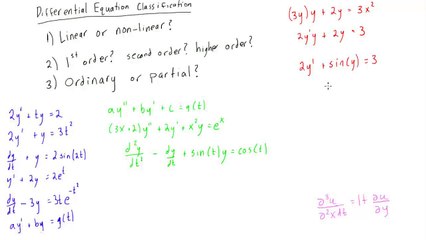 Differential Equation Classification
1) Linear or non-linear?
2) 1st order? second order? higher order?
3) Ordinary or partial?
(3y)y + 2y = 3x²
2y'y + 2y = 3
2y' + sin(y) = 3
2y' + ty = 2
2y' + y = 3t²
dy/dt + y = 2sin(2t)
y' + 2y = 2eᵗ
dy/dt - 3y = 3te^-t²
ay' + by = g(t)
ay'' + by' + c = g(t)
(3x+2)y'' + 2y' + x²y = eˣ
d²y/dt² - dy/dt + sin(t)y = cos(t)
∂u/∂y